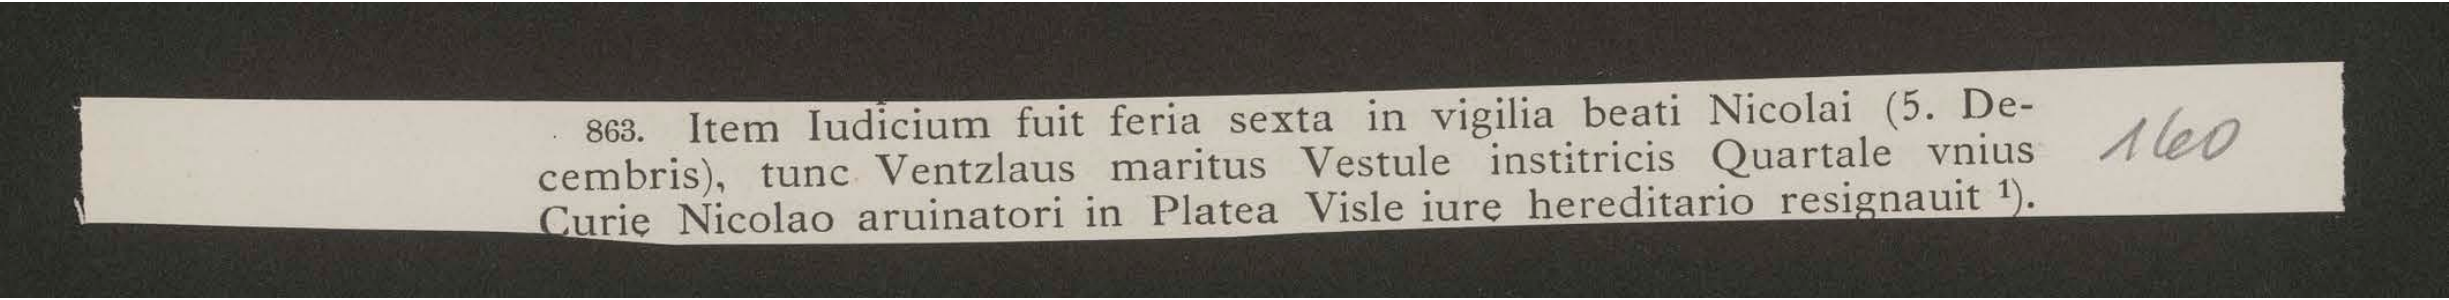 863. Item Iudicium fuit feria sexta in vigilia beati Nicolai (5. De-
cembris), tunc Ventzlaus maritus Vestule institricis Quartale vnius
Curię Nicolao aruinatori in Platea Visle iurę hereditario resignauit ¹).
160